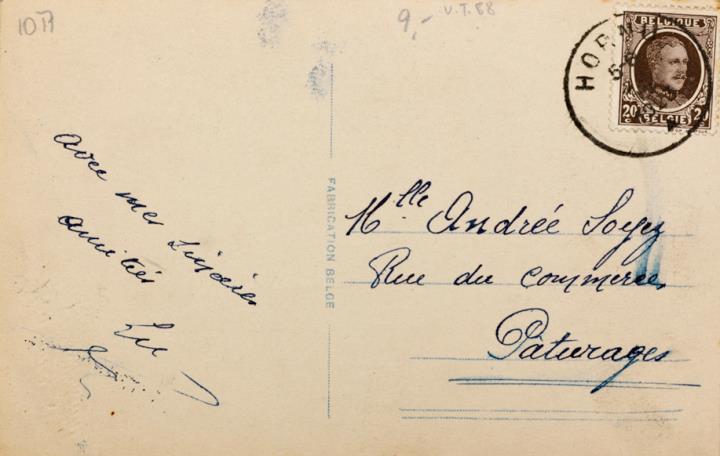 10 F
9,- V.T.88
BELGIQUE
HORNU
20 20
BELGIË
avec mes sincères
amitiés
FABRICATION BELGE
Mlle Andrée Soyez
Rue du Commerce
Pâturages